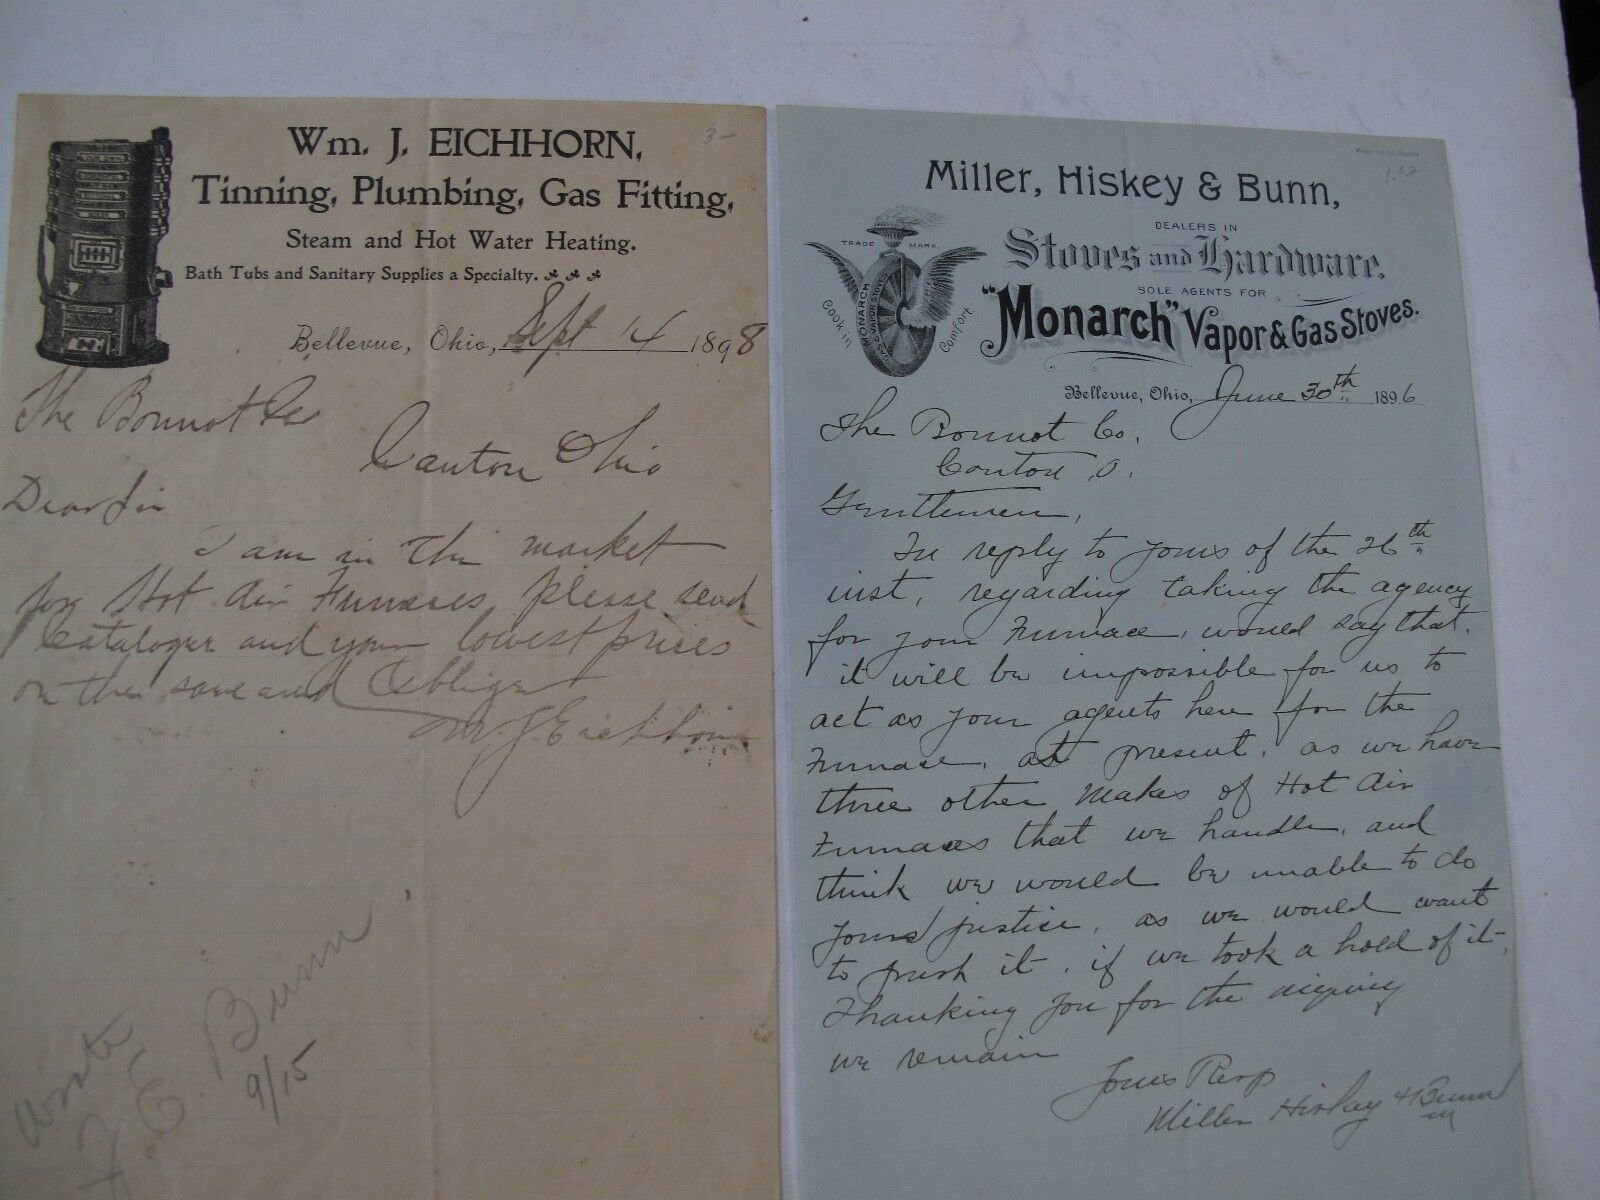 3-
Wm. J. EICHHORN,
Tinning, Plumbing, Gas Fitting,
Steam and Hot Water Heating.
Bath Tubs and Sanitary Supplies a Specialty.
Bellevue, Ohio, Sept 14 1898
The Bonnot Co
Canton Ohio
Dear Sir
I am in the market
for Hot Air Furnases please send
Cataloger and your lowest prices
on the same and Oblige
Wm. J. Eichhorn
wrote
F. E. Bunn
9/15
Miller, Hiskey & Bunn,
DEALERS IN
Stoves and Hardware.
SOLE AGENTS FOR
"Monarch" Vapor & Gas Stoves.
TRADE MARK.
MONARCH
GAS & VAPOR STOVES
Cook in Comfort
Bellevue, Ohio, June 30th 1896
The Bonnot Co.
Canton O.
Gentlemen,
In reply to yours of the 26th
inst, regarding taking the agency
for your Furnace, would say that
it will be impossible for us to
act as your agents here for the
Furnace, at present, as we have
three other makes of Hot Air
Furnaces that we handle, and
think we would be unable to do
yours justice, as we would want
to push it, if we took a hold of it.
Thanking you for the inquiry
we remain
Yours Resp
Miller Hiskey & Bunn